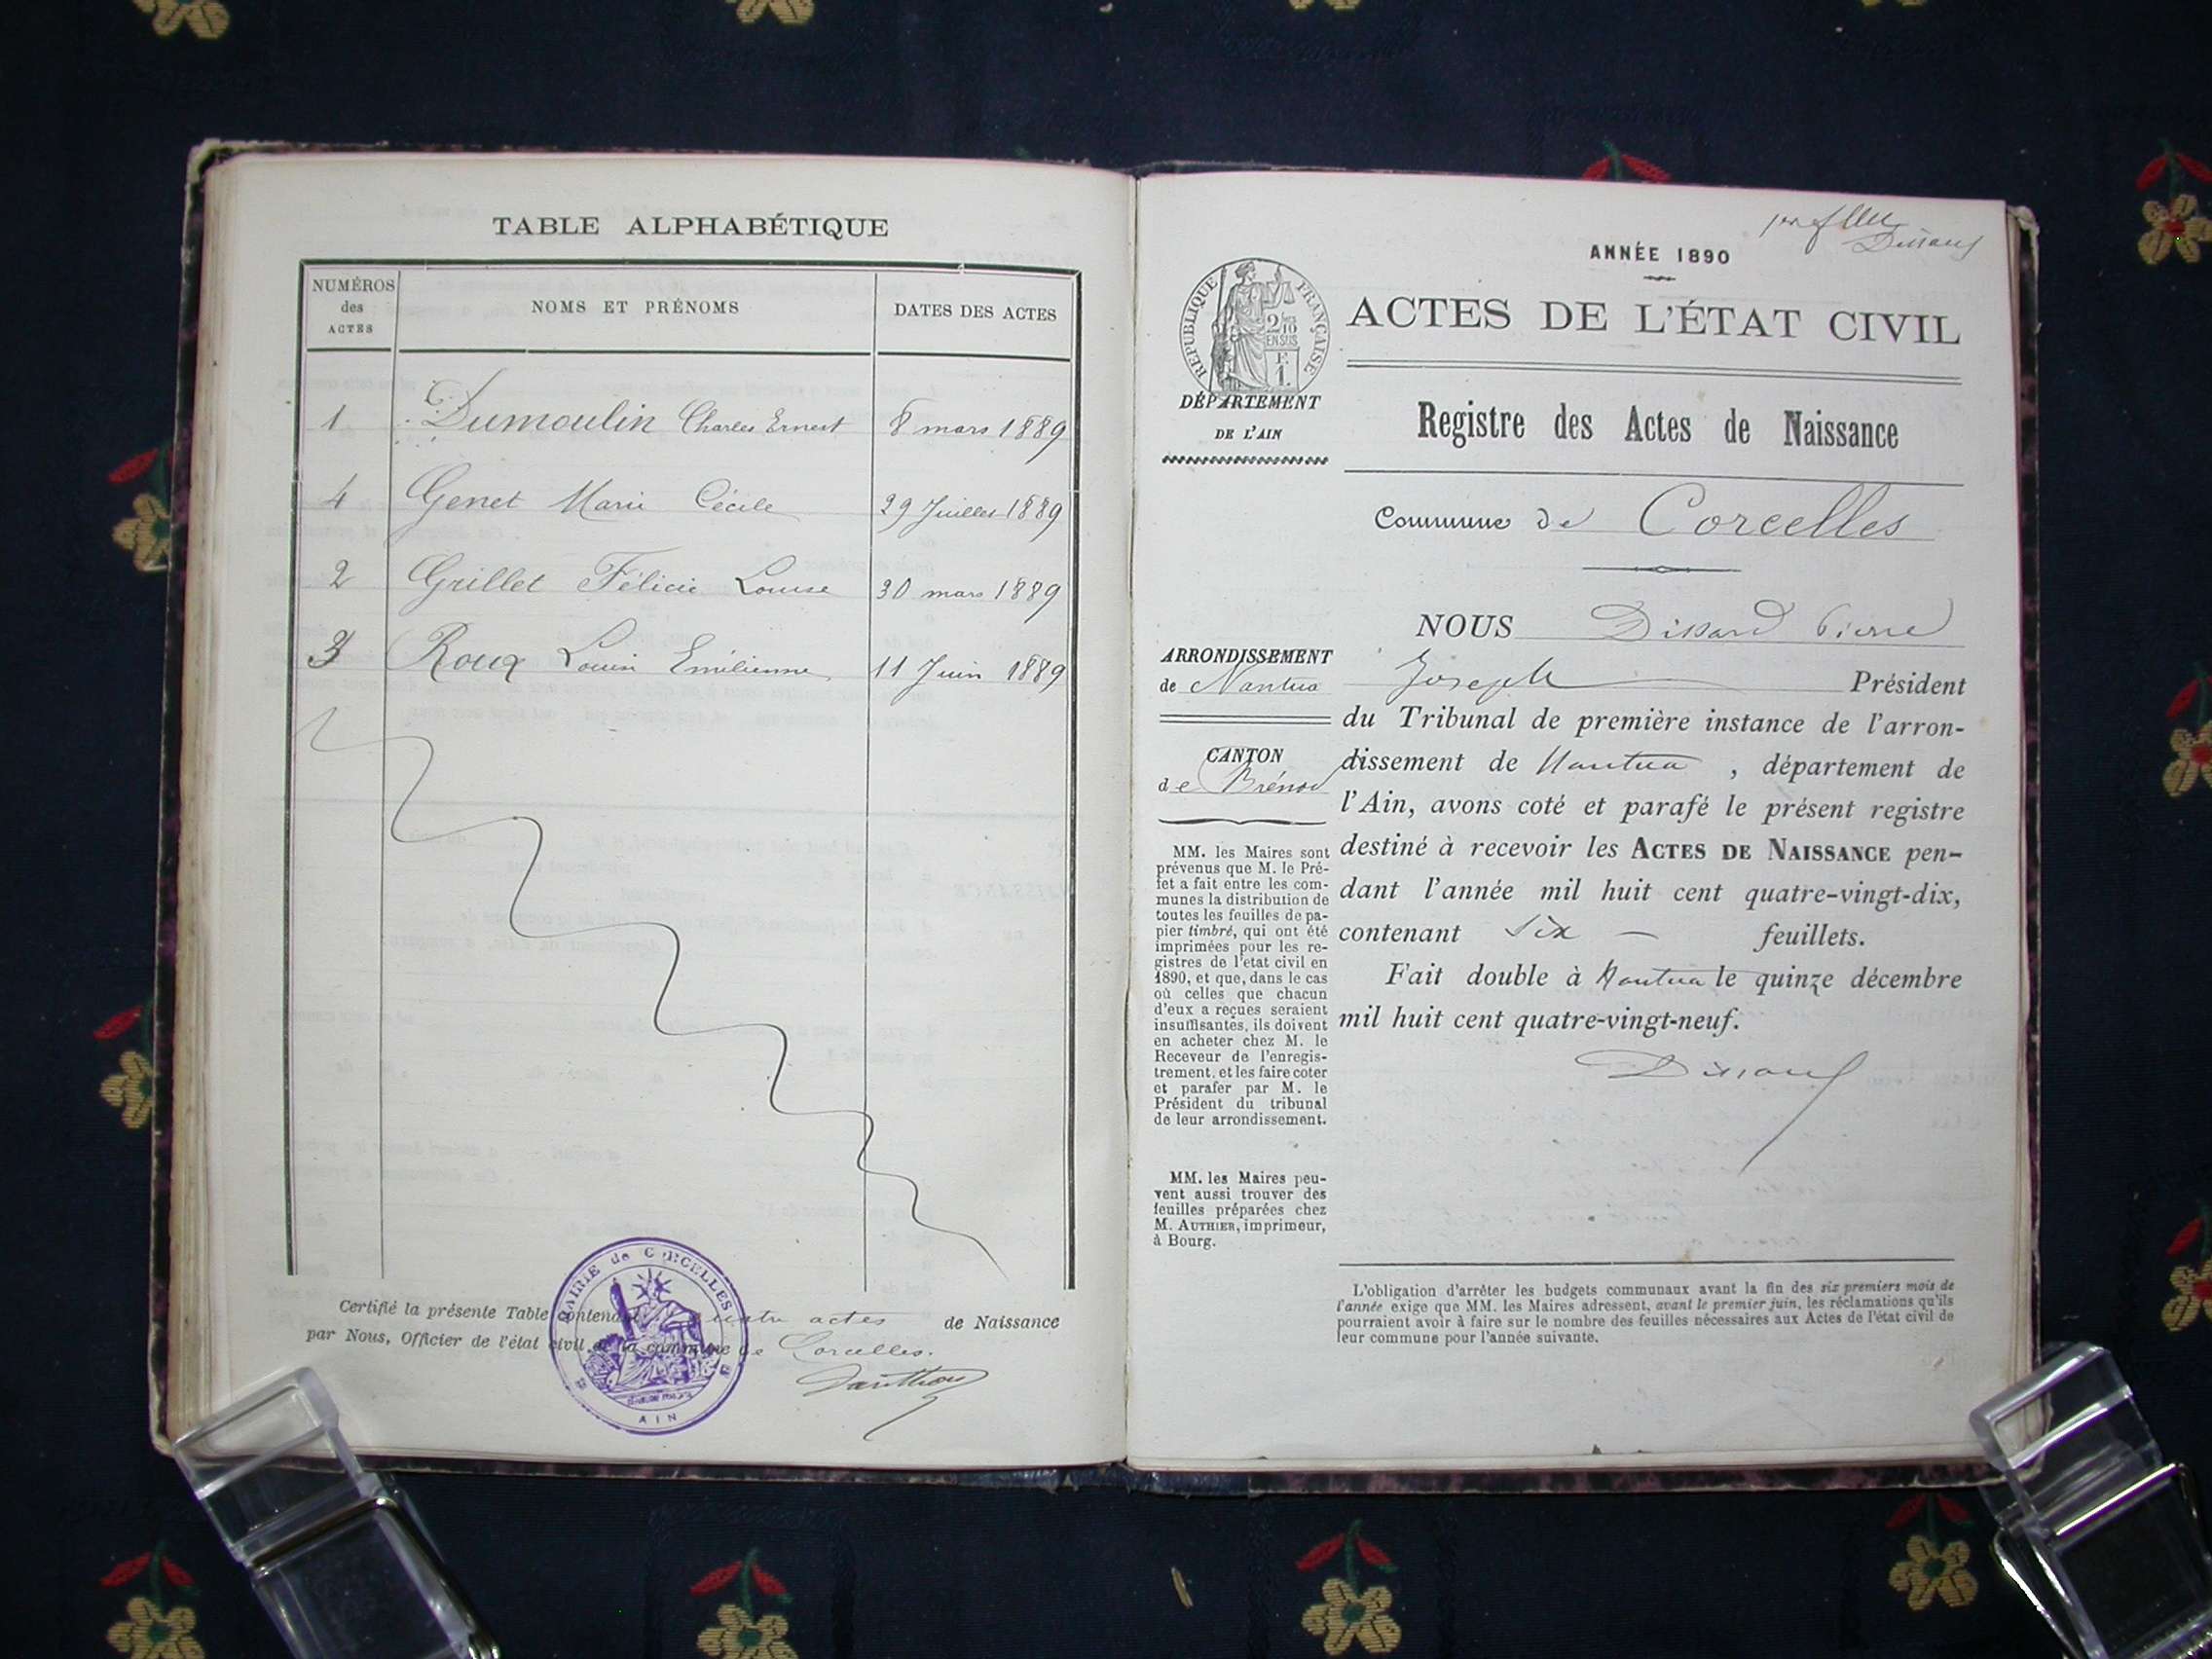 TABLE ALPHABÉTIQUE
NUMÉROS des ACTES
NOMS ET PRÉNOMS
DATES DES ACTES
1 Dumoulin Charles Ernest 8 mars 1889
4 Genet Marie Cécile 29 Juillet 1889
2 Grillet Félicie Louise 30 mars 1889
3 Roux Louise Emélienne 11 Juin 1889
Certifié la présente Table contenant quatre actes de Naissance
par Nous, Officier de l'état civil de la commune de Corcelles.
MAIRIE de CORCELLES
AIN
ANNÉE 1890
RÉPUBLIQUE FRANÇAISE
2/10
EN SUS
F.
1.
ACTES DE L'ÉTAT CIVIL
DÉPARTEMENT
DE L'AIN
Registre des Actes de Naissance
Commune de Corcelles
ARRONDISSEMENT
de Nantua
CANTON
de Brénod
MM. les Maires sont
prévenus que M. le Pré-
fet a fait entre les com-
munes la distribution de
toutes les feuilles de pa-
pier timbré, qui ont été
imprimées pour les re-
gistres de l'etat civil en
1890, et que, dans le cas
où celles que chacun
d'eux a reçues seraient
insuffisantes, ils doivent
en acheter chez M. le
Receveur de l'enregis-
trement, et les faire coter
et parafer par M. le
Président du tribunal
de leur arrondissement.
MM. les Maires peu-
vent aussi trouver des
feuilles préparées chez
M. AUTHIER, imprimeur,
à Bourg.
NOUS Dissard Pierre
Joseph Président
du Tribunal de première instance de l'arron-
dissement de Nantua , département de
l'Ain, avons coté et parafé le présent registre
destiné à recevoir les ACTES DE NAISSANCE pen-
dant l'année mil huit cent quatre-vingt-dix,
contenant Six — feuillets.
Fait double à Nantua le quinze décembre
mil huit cent quatre-vingt-neuf.
Dissard
L'obligation d'arrêter les budgets communaux avant la fin des six premiers mois de
l'année exige que MM. les Maires adressent, avant le premier juin, les réclamations qu'ils
pourraient avoir à faire sur le nombre des feuilles nécessaires aux Actes de l'état civil de
leur commune pour l'année suivante.